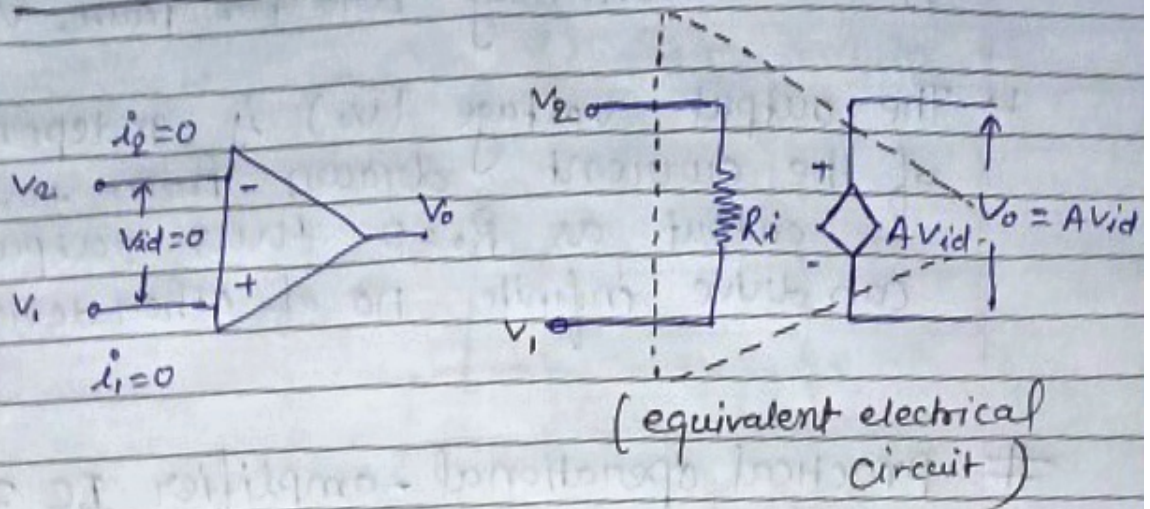 i₂=0
V₂
-
Vid=0
V₀
+
V₁
i₁=0
V₂
Ri
+
-
AVid
V₀ = AVid
V₁
(equivalent electrical
circuit)